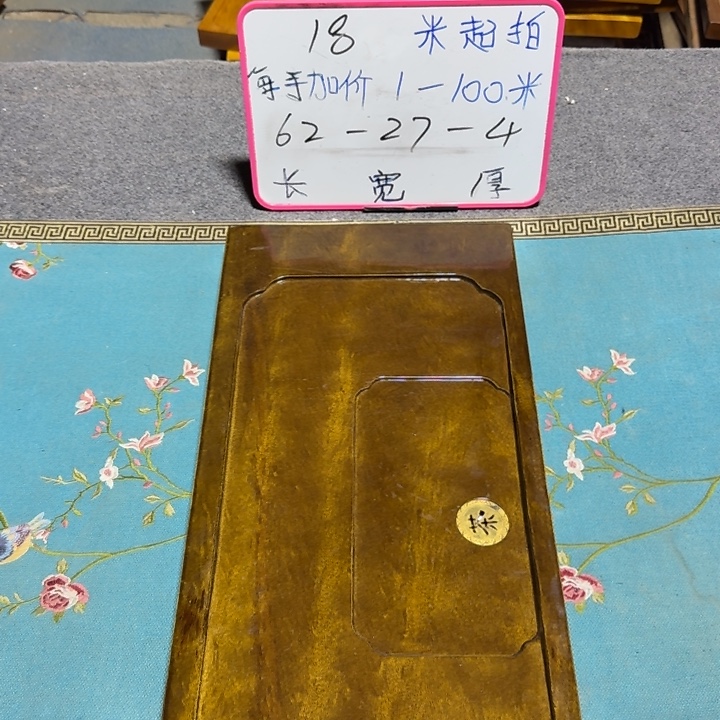 18 米起拍
每手加价 1-100米
62-27-4
长 宽 厚